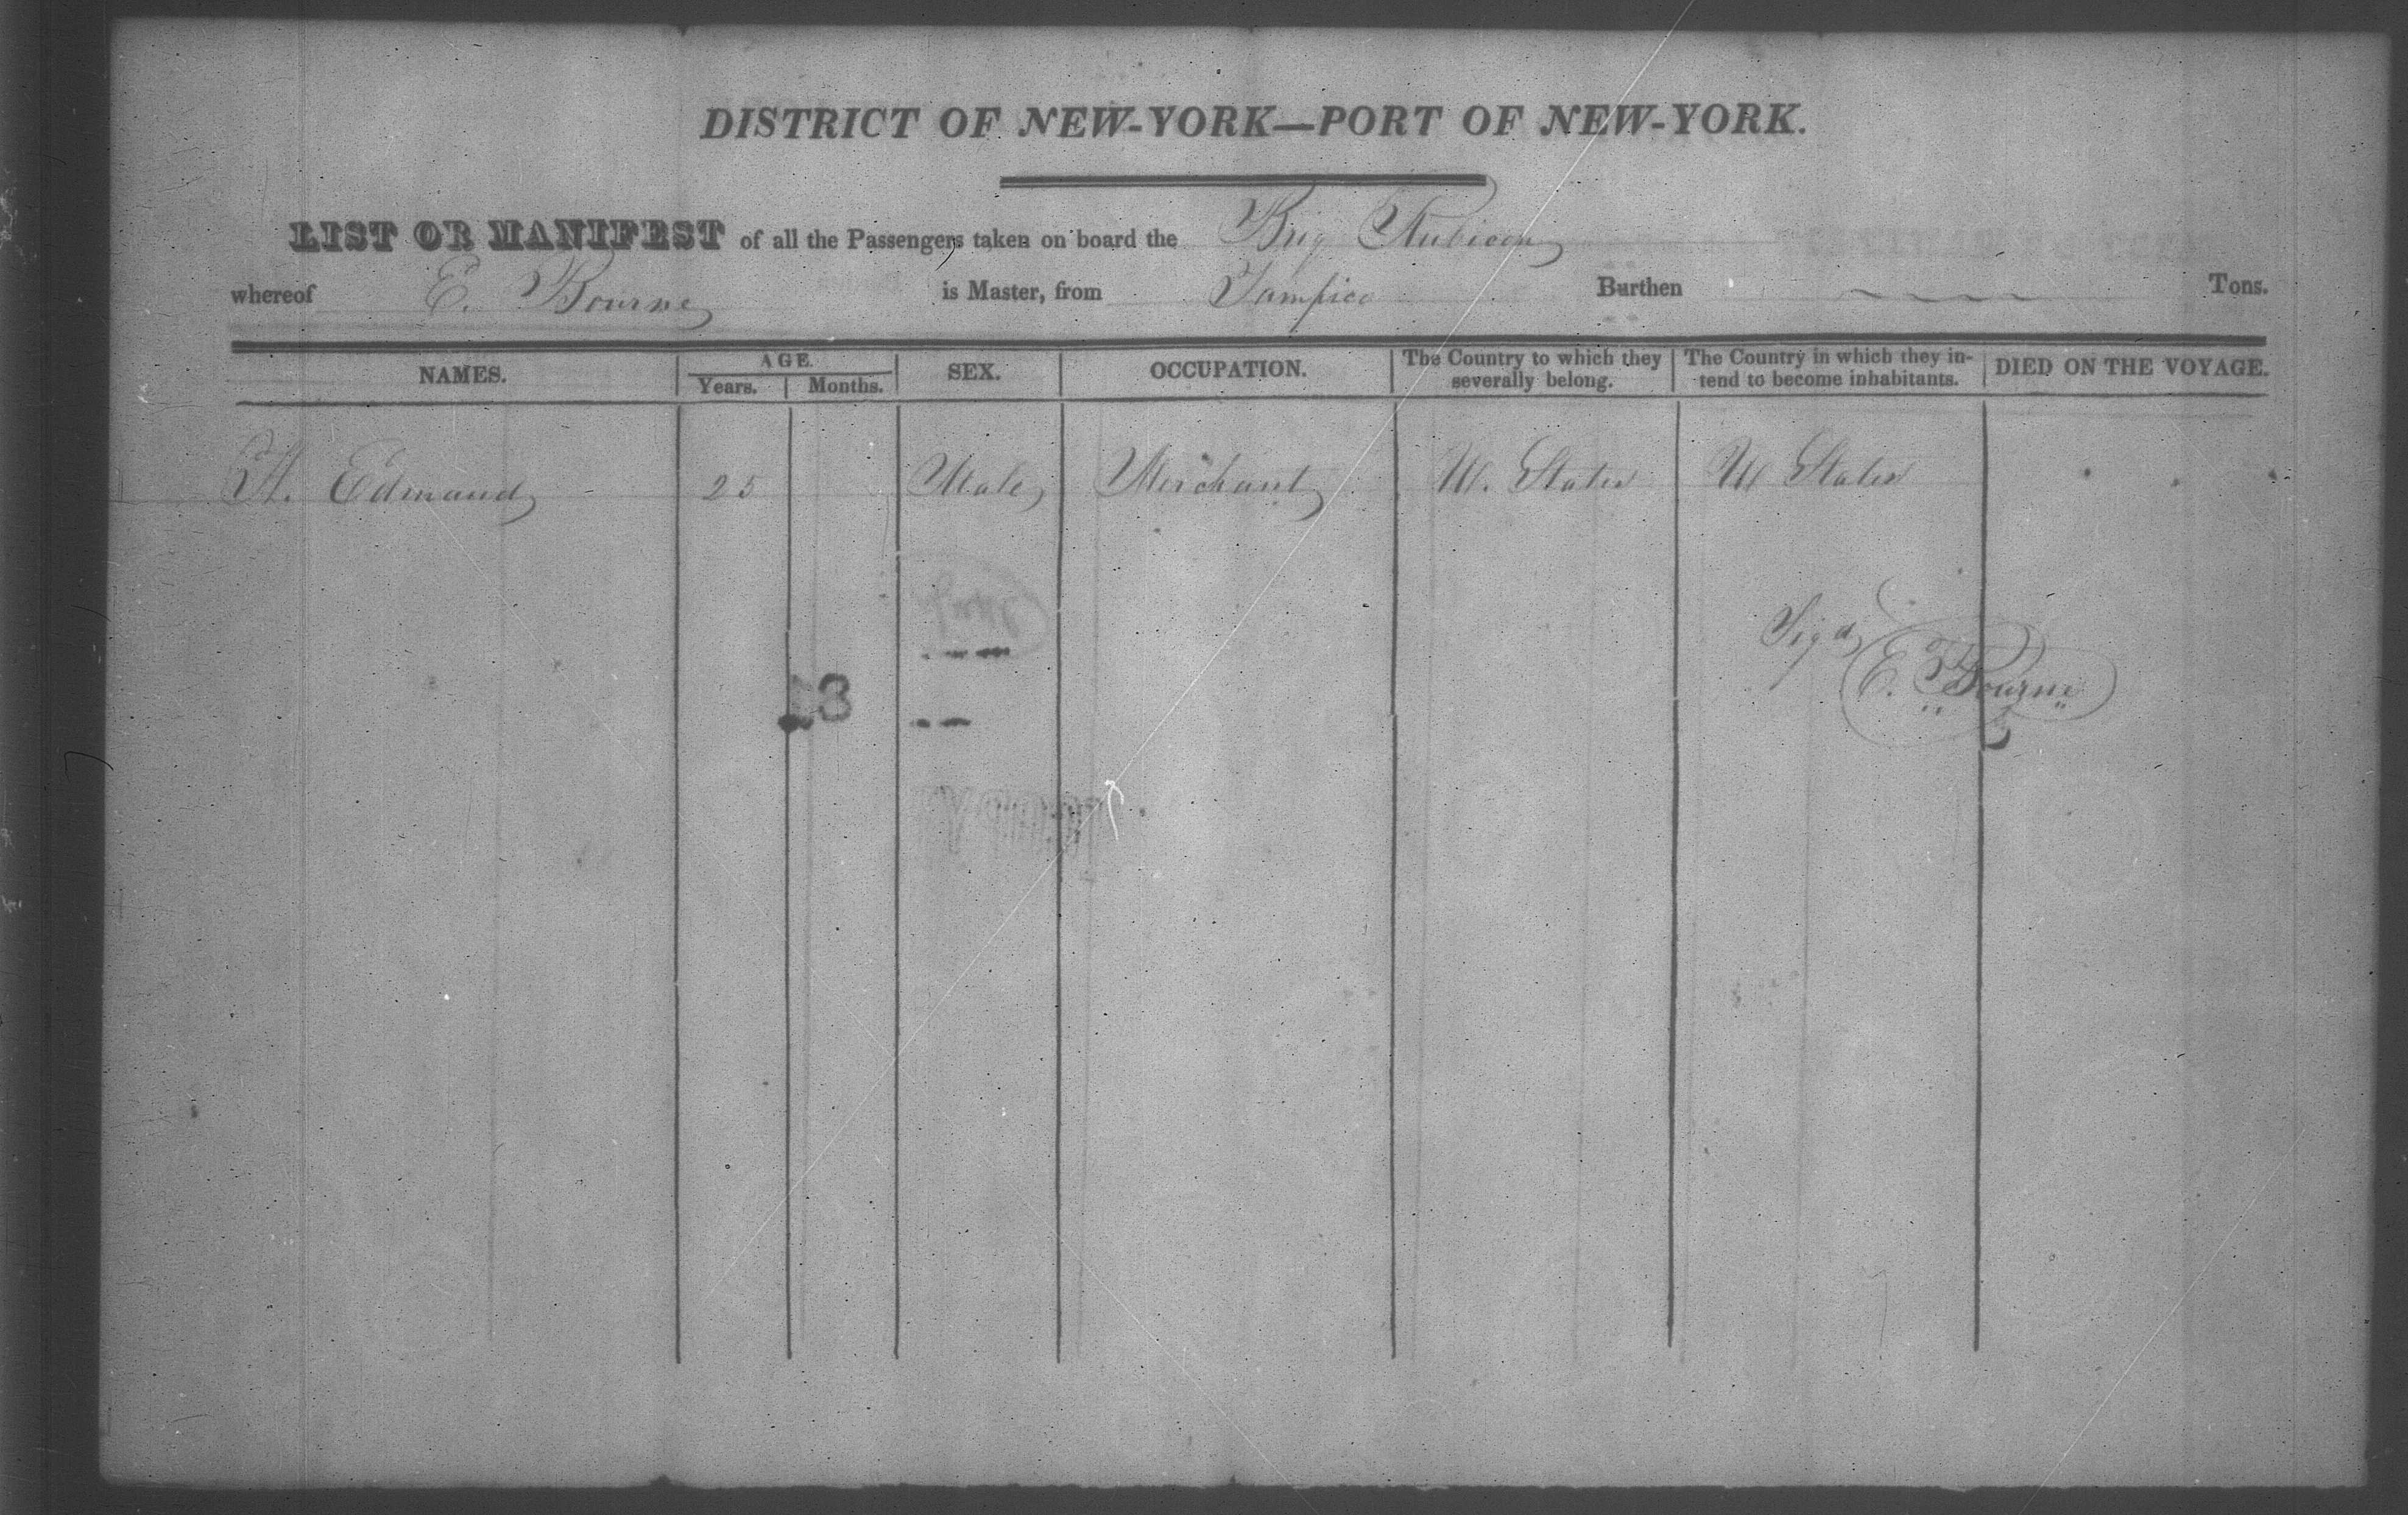 DISTRICT OF NEW-YORK—PORT OF NEW-YORK.
LIST OR MANIFEST of all the Passengers taken on board the Brig Rubicon
whereof E. Bourne is Master, from Tampico Burthen Tons.
NAMES. AGE. Years. Months. SEX. OCCUPATION. The Country to which they severally belong. The Country in which they in-tend to become inhabitants. DIED ON THE VOYAGE.
H. Edmand 25 Male Merchant U. States U States
Sigd
E. Bourne
13
COPY